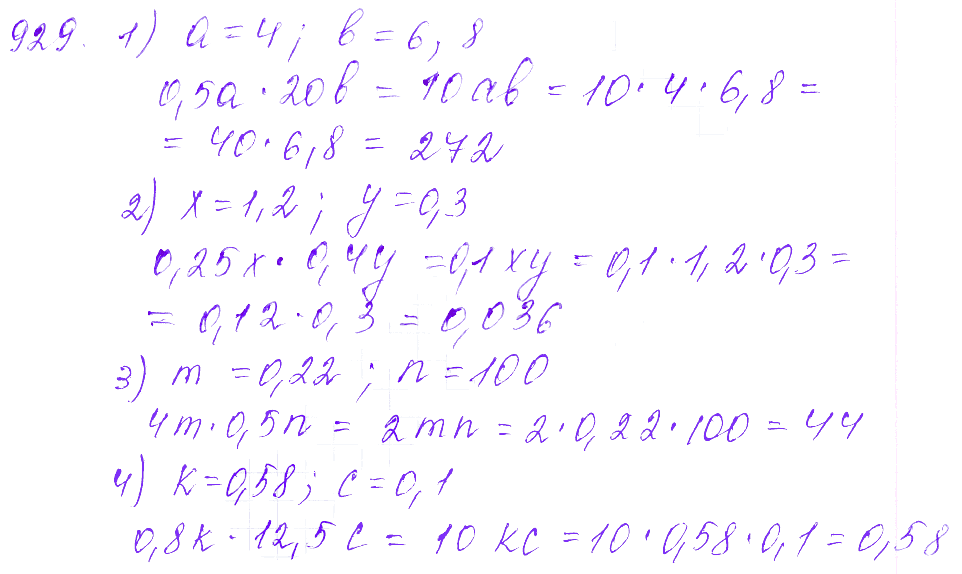 929. 1) a = 4; b = 6,8
0,5a · 20b = 10ab = 10 · 4 · 6,8 =
= 40 · 6,8 = 272
2) x = 1,2; y = 0,3
0,25x · 0,4y = 0,1xy = 0,1 · 1,2 · 0,3 =
= 0,12 · 0,3 = 0,036
3) m = 0,22; n = 100
4m · 0,5n = 2mn = 2 · 0,22 · 100 = 44
4) k = 0,58; c = 0,1
0,8k · 12,5c = 10kc = 10 · 0,58 · 0,1 = 0,58